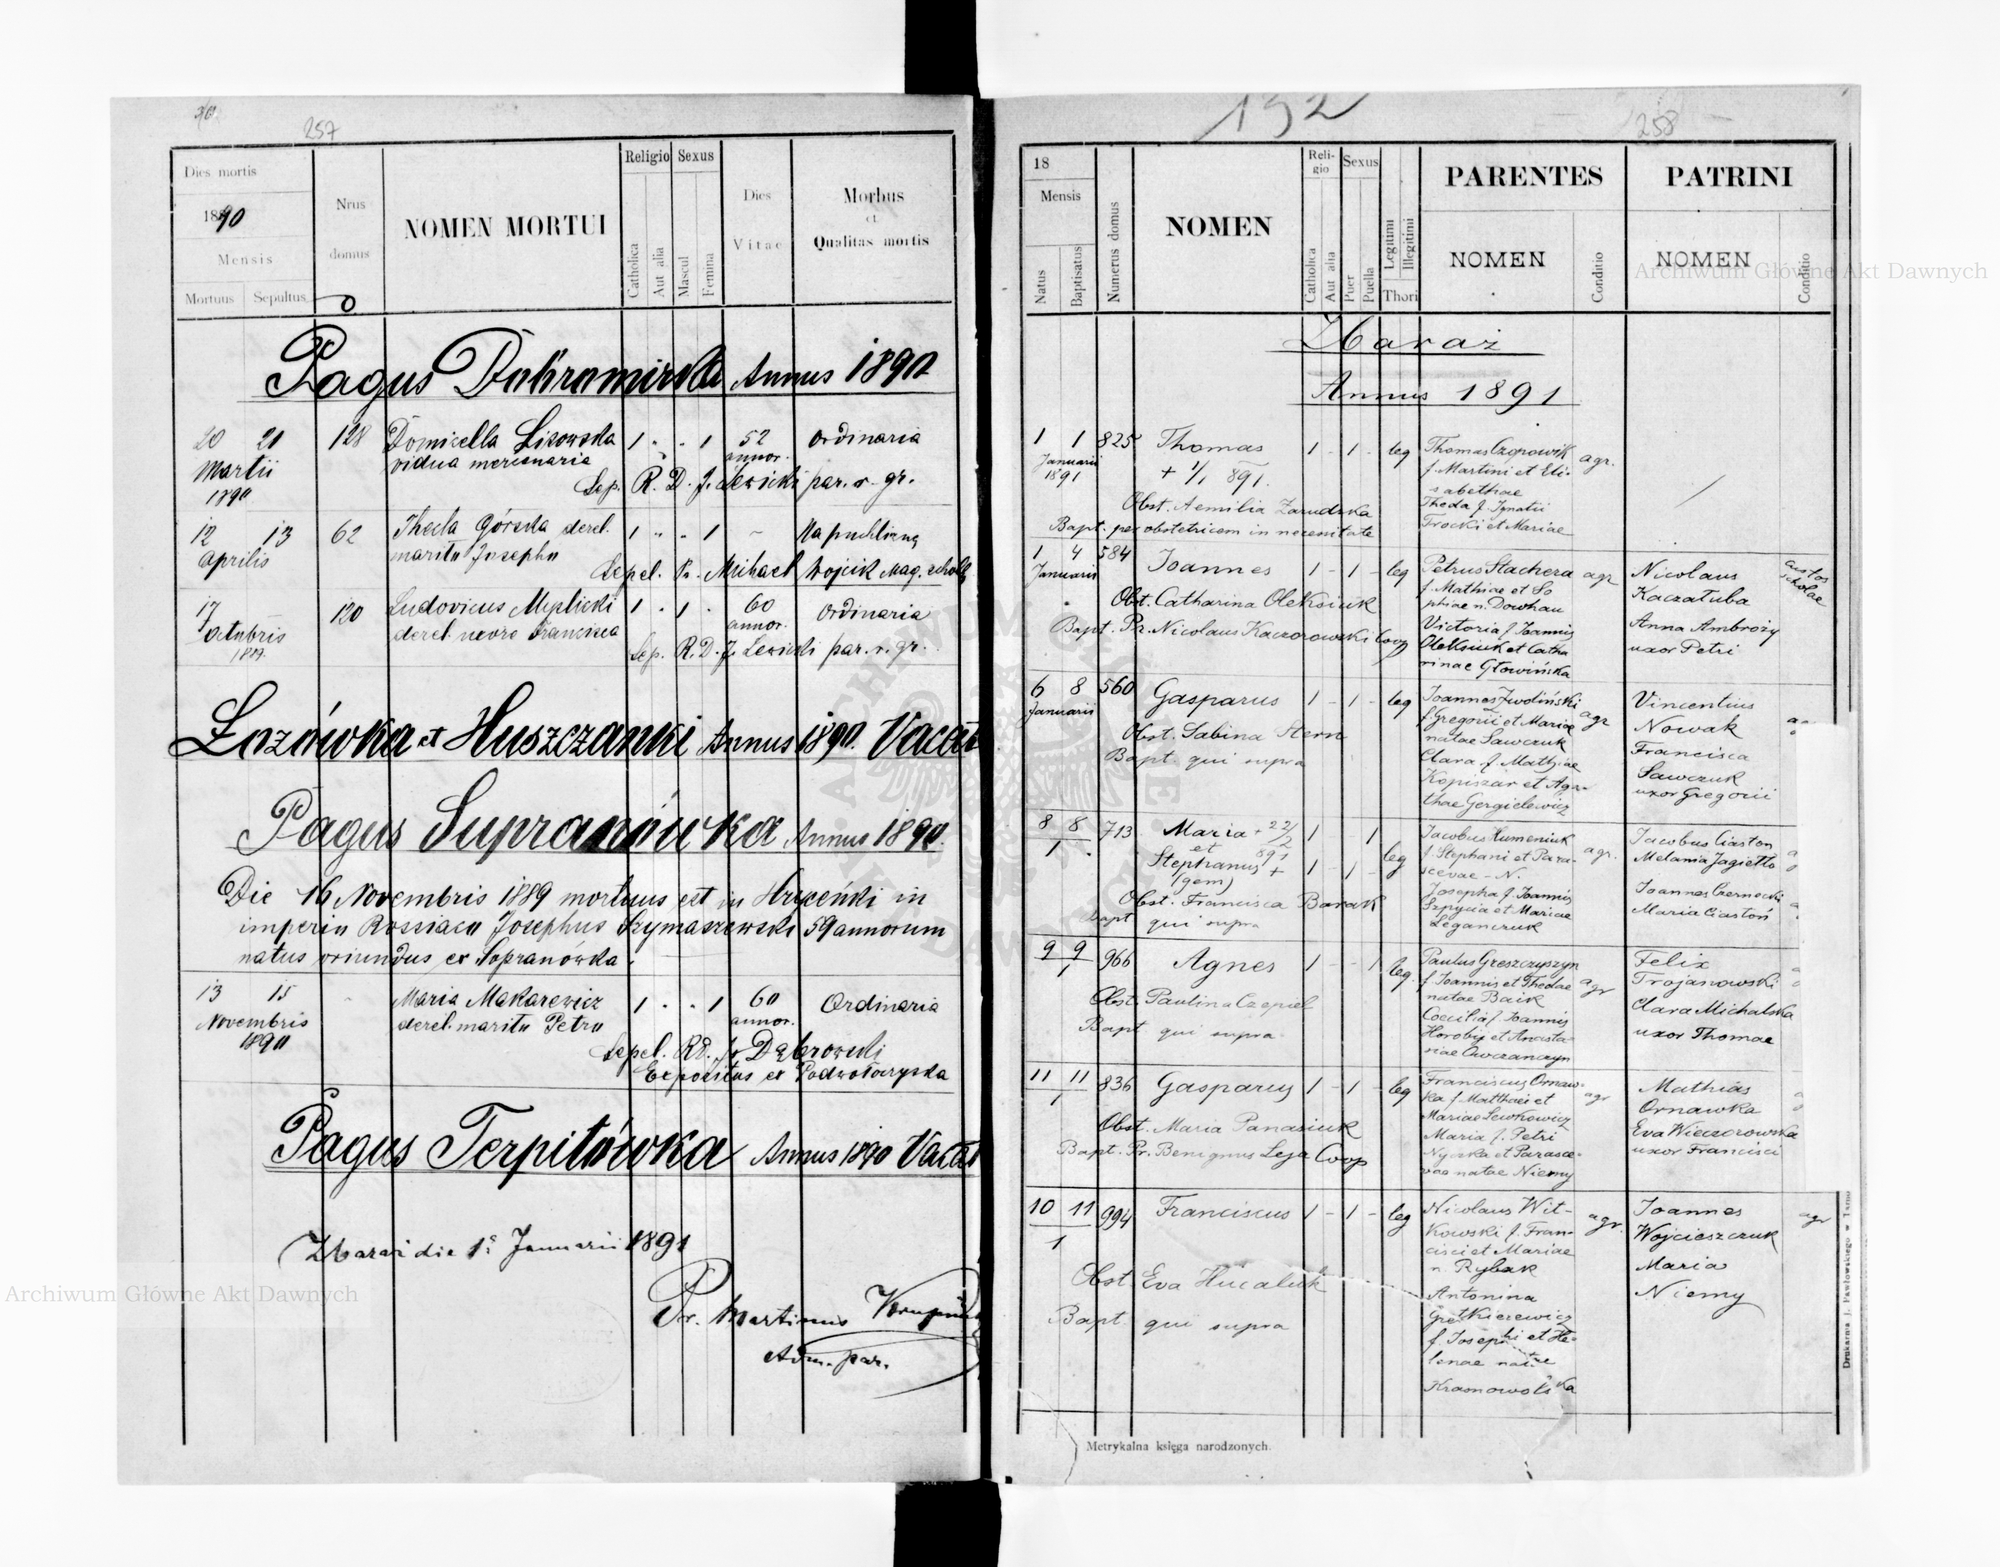 257
Dies mortis
1890
Mensis
Mortuus Sepultus
Nrus
domus
NOMEN MORTUI
Religio
Catholica
Aut alia
Sexus
Mascul
Femina
Dies
Vitae
Morbus
et
Qualitas mortis
Pagus Dobromirka Annus 1890
20 21 128 Domicella Lisowska 1 " " 1 52 ordinaria
Martii vidua mercenaria annor.
1890 Sep. R. D. J. Lewicki par. r. gr.
12 13 62 Thecla Górska derel. 1 " " 1 ~ Na puchlinę
Aprilis marito Josepho
Sepel. Michael Wojcik Mag. schol
17 120 Ludovicus Myslicki 1 " 1 " 60 Ordinaria
Octobris derel. uxore Francisca annor.
Sep. R. D. J. Lewicki par. r. gr.
Łozówka et Huszczanki Annus 1890. Vacat
Pagus Supranówka Annus 1890.
Die 16 Novembris 1889 mortuus est in in
imperio Rossiaco Josephus Szymaszewski 59 annorum
natus oriundus ex Sopranówka.
13 15 Maria Makarewicz 1 " " 1 60 Ordinaria
Novembris derel. marito Petro annor.
1890
Sepel. Rd. Jo Dąbrowski
Expositus ex Podwołoczyska
Pagus Terpiłówka Annus 1890 Vacat
Zbaraż die 1. Januarii 1891
Pr. Martinus
Adm. par.
192
258
18
Mensis
Natus
Baptisatus
Numerus domus
NOMEN
Reli-
gio
Catholica
Aut alia
Sexus
Puer
Puella
Legitimi
Illegitimi
Thori
PARENTES
NOMEN
Conditio
PATRINI
NOMEN
Conditio
Zbaraż
Annus 1891
1 1 825 Thomas 1 - 1 - leg Thomas Czopowik agr.
Januarii + 1/1 891. f. Martini et Eli-
1891 sabethae
Obst. Aemilia Zarudzka Thecla f. Ignatii
Bapt. per obstetricem in necessitate Trocki et Mariae
1 4 584 Joannes 1 - 1 - leg Petrus Stachera agr Nicolaus custos
Januarii f. Mathiae et So Kaczałuba scholae
Obst. Catharina Oleksiuk phiae n. Dowhan
Bapt. Pr. Nicolaus Kaczorowski Coop Victoria f. Joannis Anna Ambroży
Oleksiuk et Catha uxor Petri
rinae Głowińska
6 8 560 Gasparus 1 - 1 - leg Joannes Zwoliński agr Vincentius
Januarii f. Gregorii et Mariae Nowak
Obst. Sabina Stern natae Sawczuk
Bapt. qui supra Clara f. Mathiae Francisca
Kopiszár et Aga- Sawczuk
thae Gergielewicz uxor Gregorii
8 8 713 Maria + 22/2 1 - - 1 Jacobus Kumeniuk agr. Jacobus Ciaston
1 et 891 leg f. Stephani et Para- Melania Jagiełło
Stephanus + 1 - 1 - scevae - N.
(gem) Josepha f. Joannis Joannes Czernecki
Obst. Francisca Barak Szpycia et Mariae Maria Ciastoń
Bapt qui supra Leganczuk
9 9 966 Agnes 1 - - 1 leg. Paulus Greszczyszyn agr Felix
1 f. Joannis et Theclae Trojanowski
Obst. Paulina Czepiel natae Baik
Bapt qui supra. Coecilia f. Joannis Clara Michalska
Horobij et Anasta- uxor Thomae
siae Owczarczyn
11 11 836 Gasparus 1 - 1 - leg Franciscus Ornaw- agr Mathias
1 ka f. Matthaei et Ornawka
Obst. Maria Panasiuk Mariae Lewkowicz Eva Wieczorowska
Bapt. Pr. Benignus Leja Coop Maria f. Petri uxor Francisci
et Parasce-
vae natae Niemy
10 11 994 Franciscus 1 - 1 - leg Nicolaus Wit- agr Joannes agr
1 kowski f. Fran- Wojcieszczuk
cisci et Mariae Maria
Obst Eva Hucaluk n. Rybak Niemy
Bapt. qui supra Antonina
f. Josephi et He-
lenae natae
Krasnowolska
Metrykalna księga narodzonych.
Drukarnia J. Pawłowskiego w
Archiwum Główne Akt Dawnych
Archiwum Główne Akt Dawnych